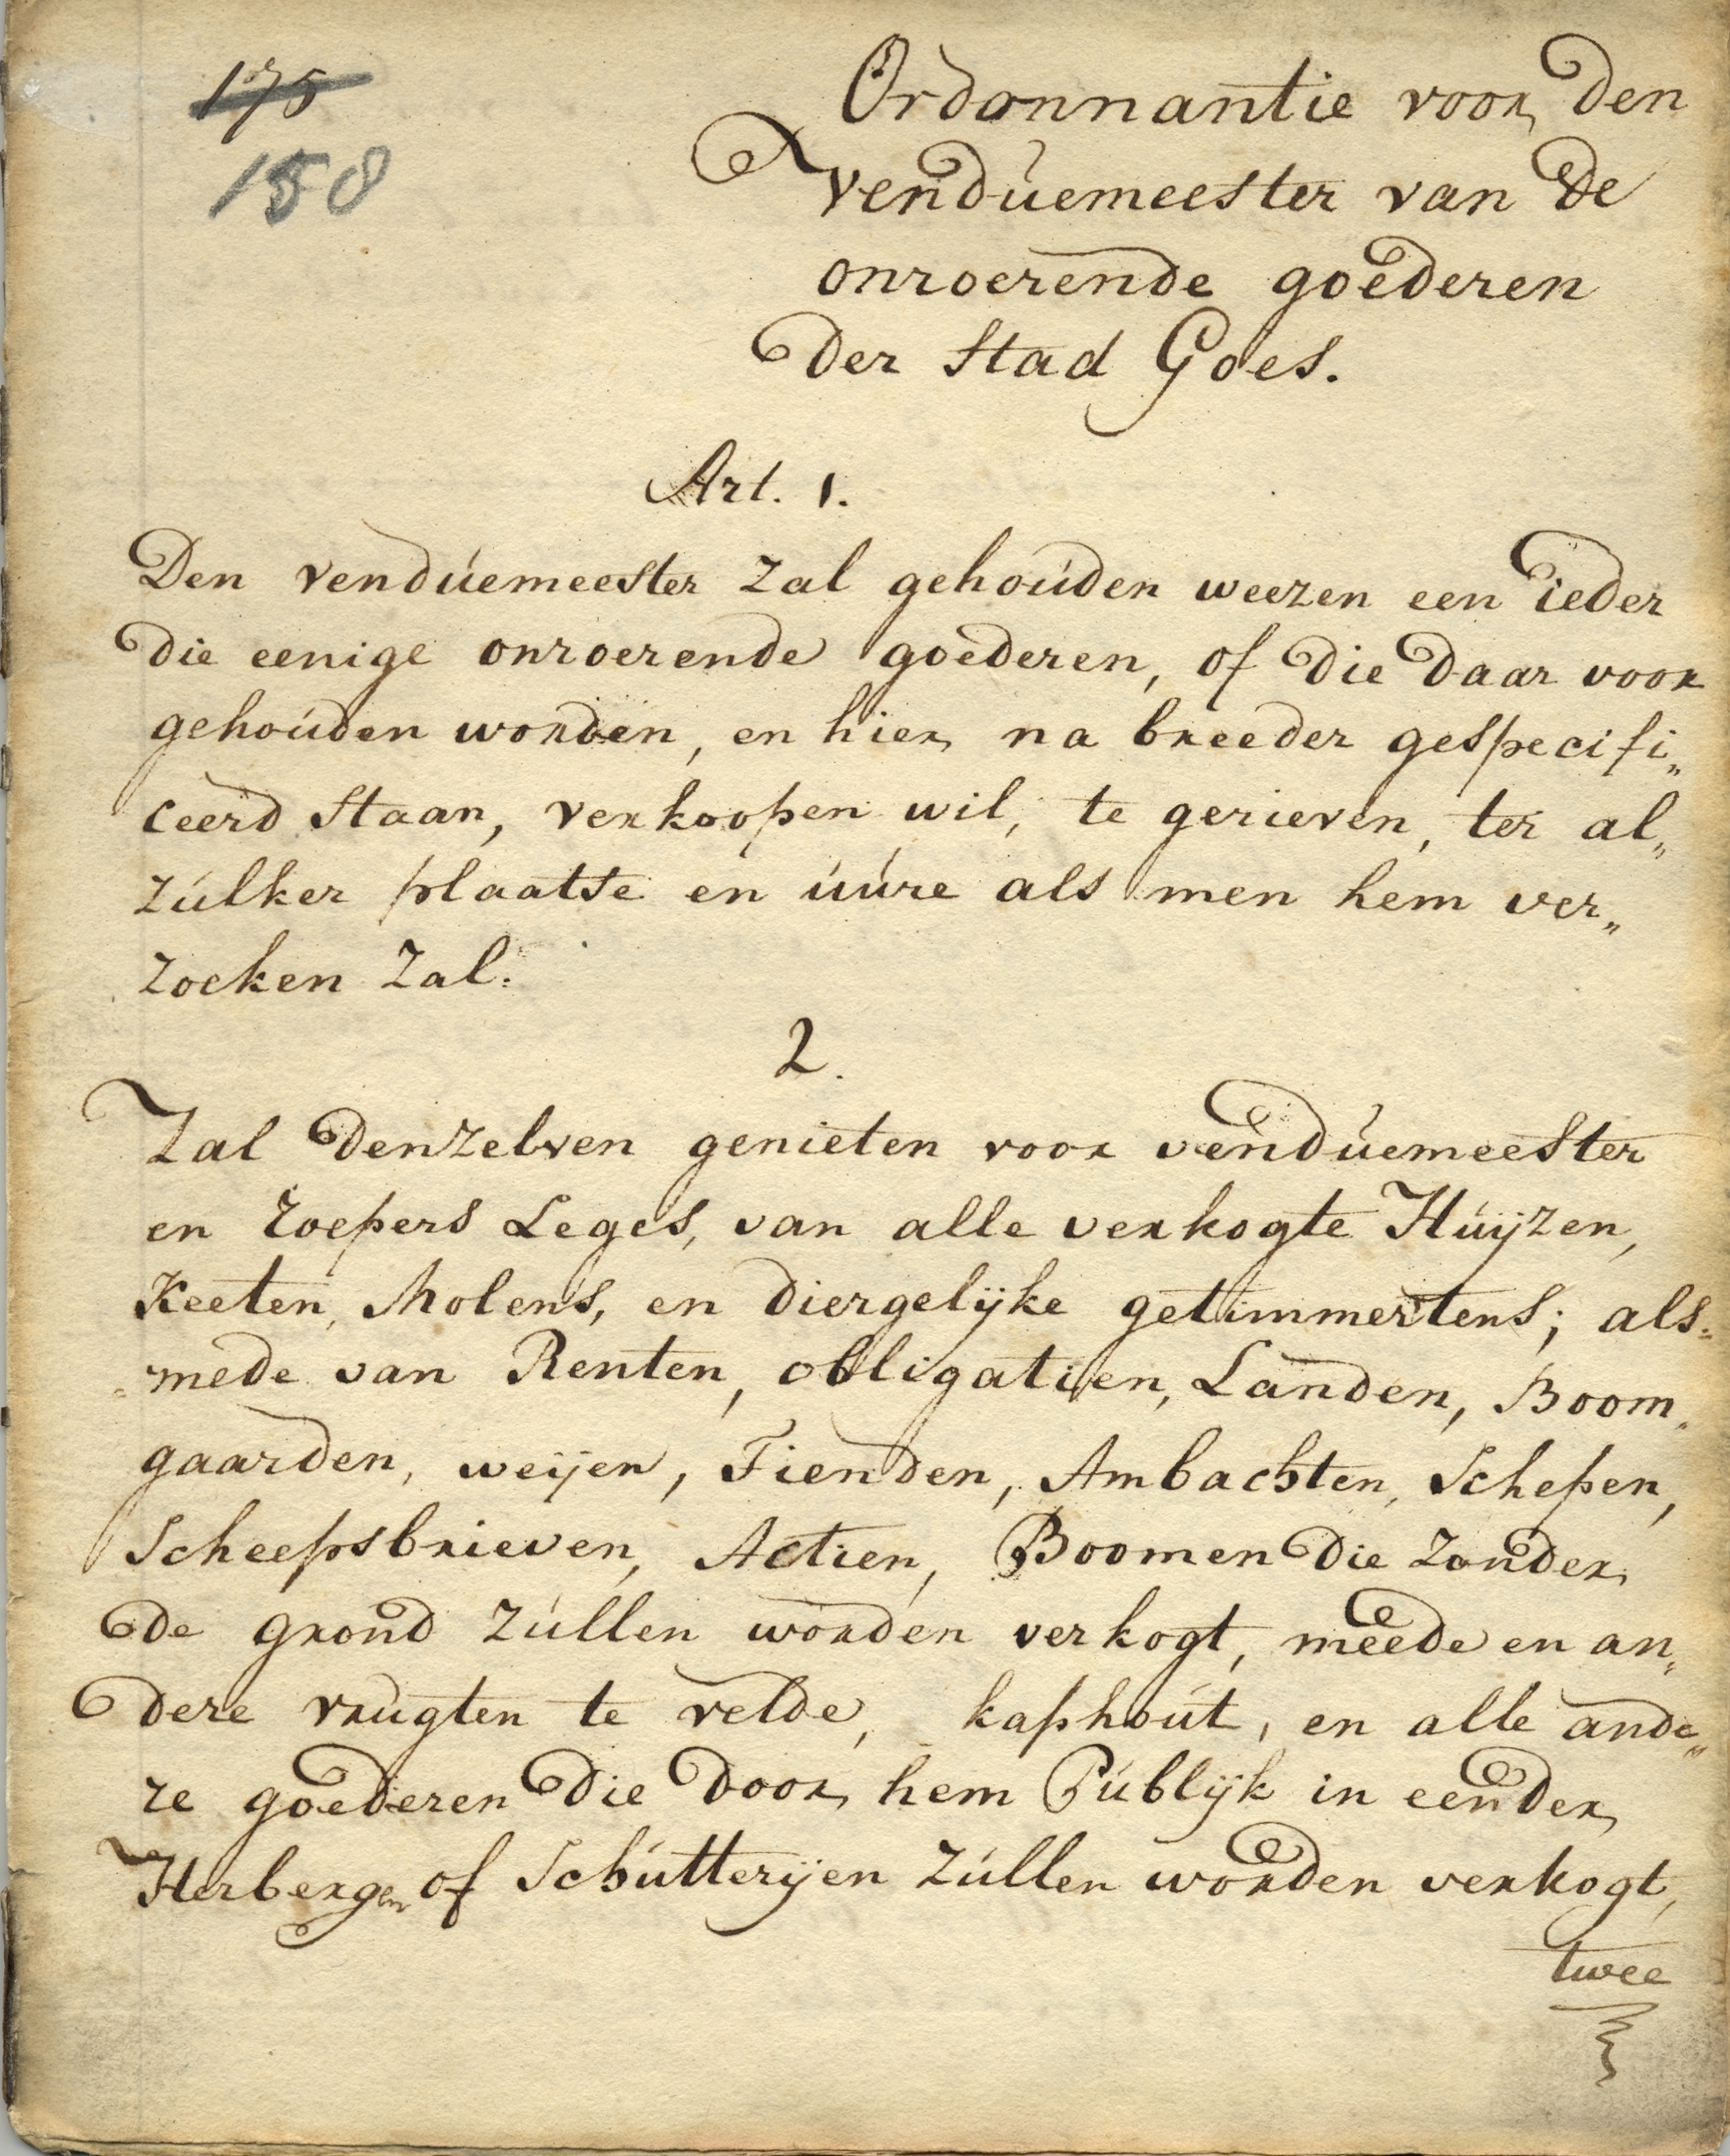 175
158
Ordonnantie voor den
venduemeester van de
onroerende goederen
der Stad Goes.
Art. 1.
Den venduemeester zal gehouden weezen een ieder
die eenige onroerende goederen, of die daar voor
gehouden worden, en hier na breeder gespecifi„
ceerd Staan, verkoopen wil, te gerieven, ter al„
zulker plaatse en uure als men hem ver„
zoeken zal.
2.
Zal denzelven genieten voor venduemeester
en roepers Leges, van alle verkogte Huijzen,
Keeten, Molens, en diergelijke getimmertens; als„
„mede van Renten, obligatien, Landen, Boom„
gaarden, weijen, Tienden, Ambachten, Schepen,
Scheepsbrieven, Actien, Boomen die zonder
de grond zullen worden verkogt, meede en an„
dere vrugten te velde, kaphout, en alle ande„
re goederen die door hem Publijk in eender
Herbergen of Schutterijen zullen worden verkogt,
twee